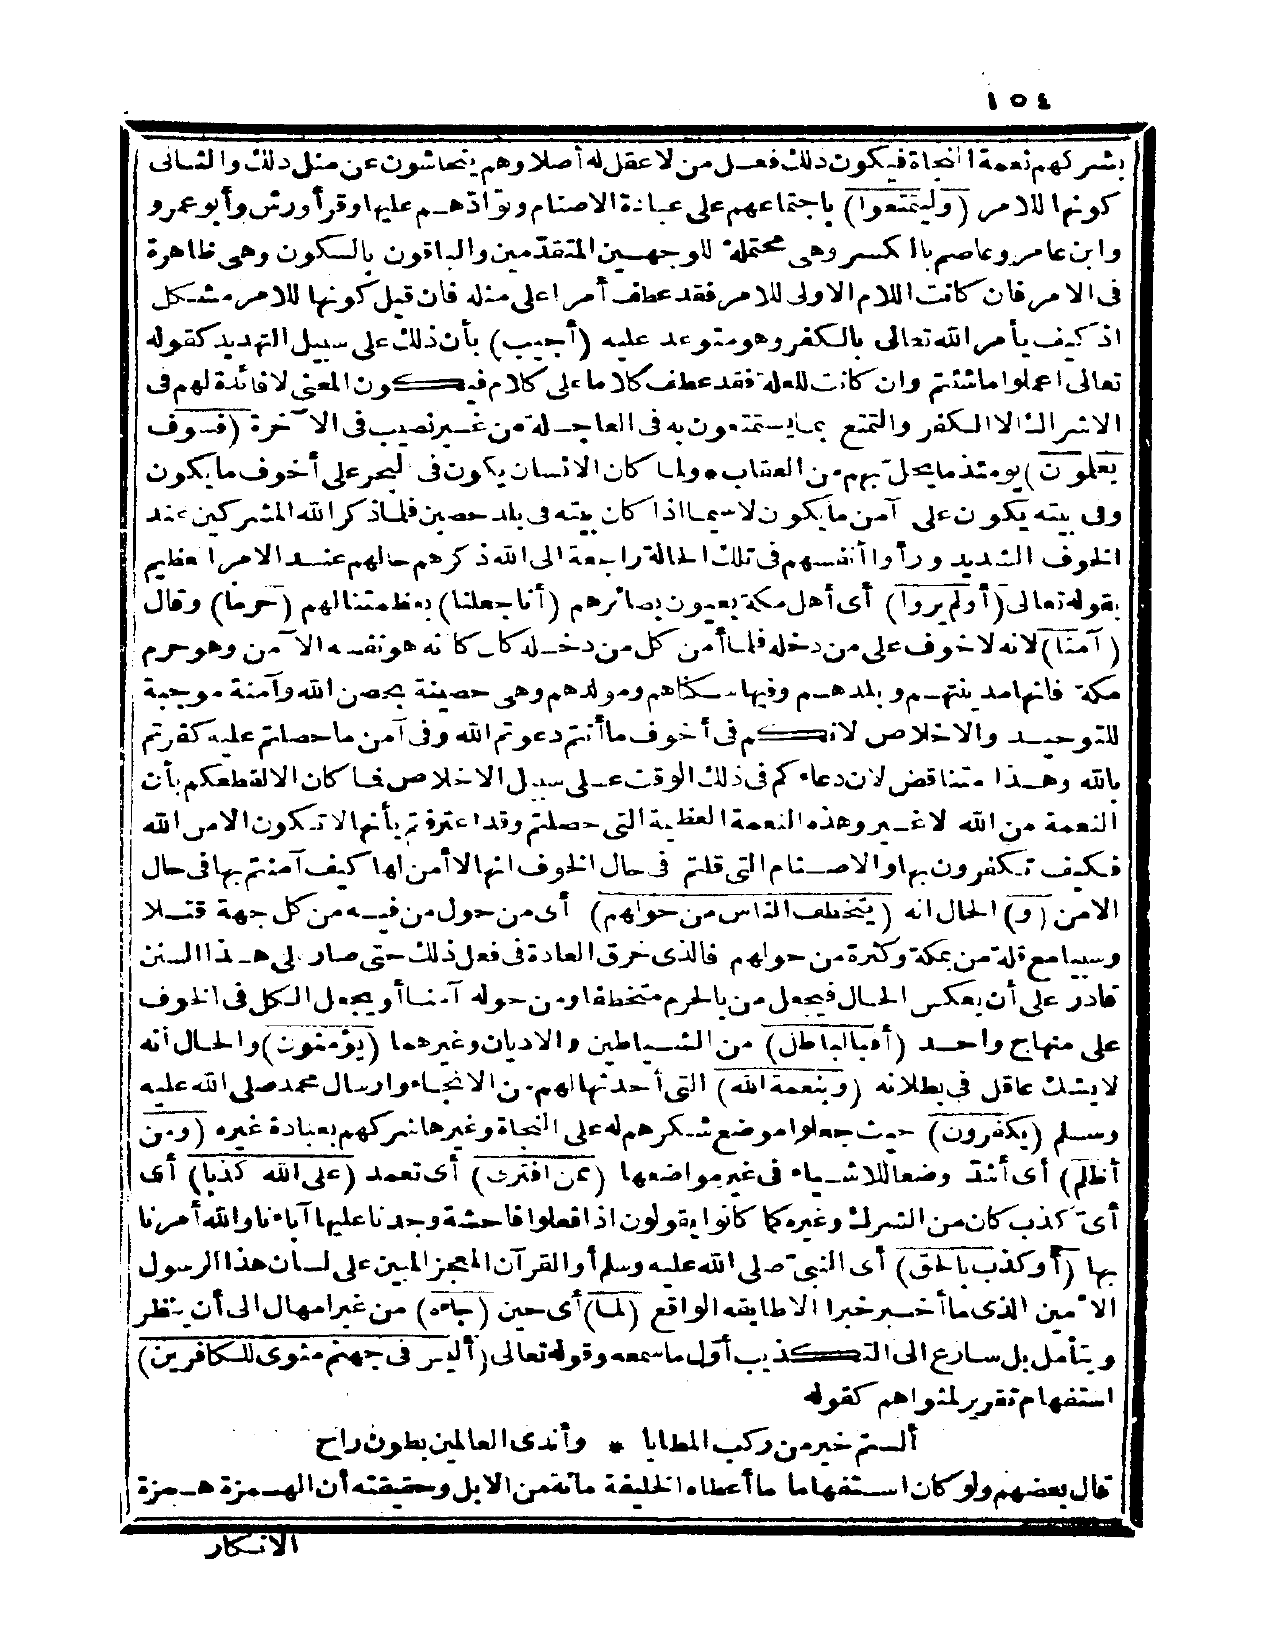 ١٥٤
بشركهم نعمة النجاة فيكون ذلك فعل من لا عقل له أصلا وهم يتحاشون عن مثل ذلك والثانى
كونها للامر (وليتمتعوا) باجتماعهم على عبادة الاصنام وتوادّهم عليها وقرأ ورش وأبو عمرو
وابن عامر وعاصم بالكسر وهى محتملة للوجهين المتقدّمين والباقون بالسكون وهى ظاهرة
فى الامر فان كانت اللام الاولى للامر فقد عطف أمرا على مثله فان قيل كونها للامر مشكل
اذ كيف يأمر الله تعالى بالكفر وهو متوعد عليه (أجيب) بأن ذلك على سبيل التهديد كقوله
تعالى اعملوا ما شئتم وان كانت للعلة فقد عطف كلاما على كلام فيكون المعنى لا فائدة لهم فى
الاشراك الا الكفر والتمتع بما يستمتعون به فى العاجلة من غير نصيب فى الآخرة (فسوف
يعلمون) يومئذ ما يحلّ بهم من العقاب * ولما كان الانسان يكون فى البحر على أخوف ما يكون
وفى بيته يكون على آمن ما يكون لا سيما اذا كان بيته فى بلد حصين فلما ذكر الله المشركين عند
الخوف الشديد ورأوا أنفسهم فى تلك الحالة راجعة الى الله ذكرهم حالهم عند الامر العظيم
بقوله تعالى (أولم يروا) أى أهل مكة بعيون بصائرهم (أنا جعلنا) بعظمتنا لهم (حرما) وقال
(آمنا) لانه لا خوف على من دخله فلما أمن كل من دخله كان كانه هو نفسه الآمن وهو حرم
مكة فانها مدينتهم وبلدهم وفيها سكناهم ومولدهم وهى حصينة بحصن الله وآمنة موجبة
للتوحيد والاخلاص لانكم فى أخوف ما أنتم دعوتم الله وفى آمن ما حصلتم عليه كفرتم
بالله وهذا متناقض لان دعاءكم فى ذلك الوقت على سبيل الاخلاص فما كان الا لقطعكم بأن
النعمة من الله لا غير وهذه النعمة العظيمة التى حصلتم وقد اعترفتم بأنها لا تكون الا من الله
فكيف تكفرون بها والاصنام التى قلتم فى حال الخوف انها لا أمن لها كيف آمنتم بها فى حال
الامن (و) الحال انه (يتخطف الناس من حولهم) أى من حول من فيه من كل جهة قتلا
وسبيا مع قلة من بمكة وكثرة من حولهم فالذى خرق العادة فى فعل ذلك حتى صار على هذا السنن
قادر على أن يعكس الحال فيجعل من بالحرم متخطفا ومن حوله آمنا أو يجعل الكل فى الخوف
على منهاج واحد (أفبالباطل) من الشياطين والاديان وغيرهما (يؤمنون) والحال أنه
لا يشك عاقل فى بطلانه (وبنعمة الله) التى أحدثها لهم من الانجاء وارسال محمد صلى الله عليه
وسلم (يكفرون) حيث جعلوا موضع شكرهم له على النجاة وغيرها شركهم بعبادة غيره (ومن
أظلم) أى أشدّ وضعا للاشياء فى غير مواضعها (ممن افترى) أى تعمد (على الله كذبا) أى
أىّ كذب كان من الشرك وغيره كما كانوا يقولون اذا فعلوا فاحشة وجدنا عليها آباءنا والله أمرنا
بها (أو كذب بالحق) أى النبىّ صلى الله عليه وسلم أو القرآن المعجز المبين على لسان هذا الرسول
الامين الذى ما أخبر خبرا الا طابقه الواقع (لما) أى حين (جاءه) من غير امهال الى أن ينظر
ويتأمل بل سارع الى التكذيب أوّل ما سمعه وقوله تعالى (أليس فى جهنم مثوى للكافرين)
استفهام تقرير لمثواهم كقوله
ألستم خير من ركب المطايا * وأندى العالمين بطون راح
قال بعضهم ولو كان استفهاما ما أعطاه الخليفة مائة من الابل وحقيقته أن الهمزة همزة
الانكار